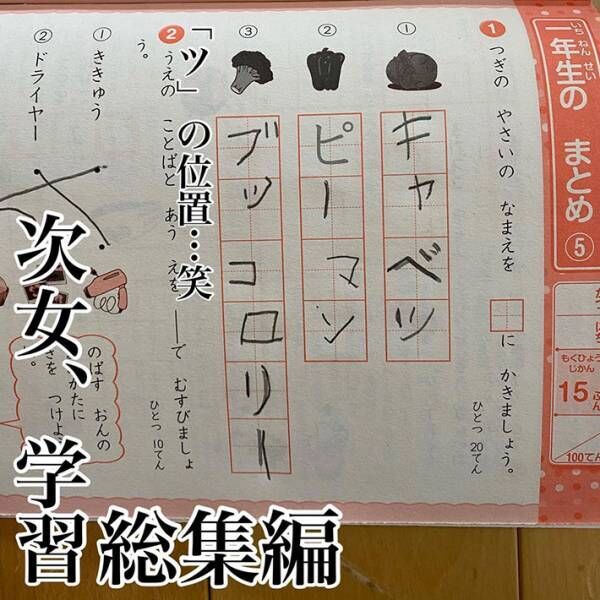 いちねんせい
一年生の まとめ ⑤
もくひょう
じかん
15ふん
100てん
1 つぎの やさいの なまえを □に かきましょう。
ひとつ 20てん
①
キャベツ
②
ピーマン
③
ブッコロリー
2 うえの ことばと あう えを ――で むすびましょ
う。
ひとつ 10てん
① ききゅう
② ドライヤー
のばす おんの
かたに
つけよ
「ツ」の位置…笑
次女、
学習総集編